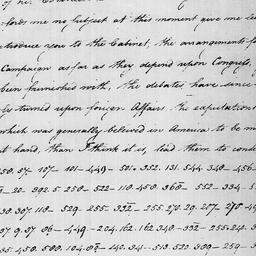 of ne
fords me no subject at this moment give me le
troduce you to the Cabinet, the arrangements f
Campaign as far as they depend upon Congress, h
been furnished with, the debates have since
ly turned upon foreign Affairs. the expectations
which was generally believed in America to be m
at hand, than I think it is, lead them to conse
50. 57. 107. 101 - 449 - 501. 352. 131. 544. 340 - 456 -
20. 392. 5. 250 - 522 - 110. 450. 360 - 552 - 334 - 5
30. 307. 118 - 529 - 255 - 332 - 255. 270. 29. 207 - 275
37. 9. 37. 06 - 449 - 204. 162. 162. 340 - 332 - 255. 24. 3
35. 450. 500. 104. 08 - 140. 341 - 513. 520. 309 - 250 - 3